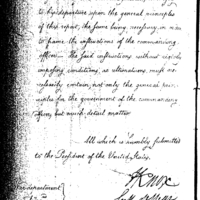 to his departure upon the general principles
of this report, the same being necessary, in order
to frame the instructions of the commissioning
officer - The said instructions without rigidly
imposing conditions, as alterations, must ne-
cessarily contain, not only the general prin-
ciples for the government of the commissioning
officer, but much detail matter
All which is humbly submitted
to the President of the United States,
HKnox
War department